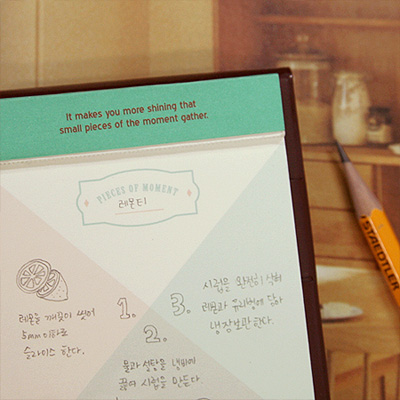 It makes you more shining that
small pieces of the moment gather.
PIECES OF MOMENT
레몬티
1.
레몬을 깨끗이 씻어
5mm 두께로
슬라이스 한다.
2.
물과 설탕을 냄비에
끓여 시럽을 만든다.
3.
시럽을 완전히 식혀
레몬과 유리병에 담아
냉장보관 한다.
STAEDTLER